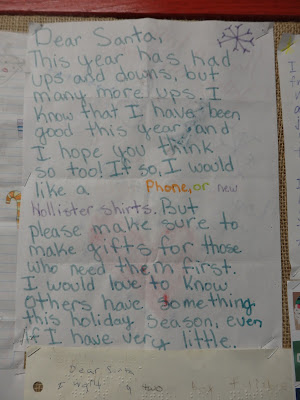 Dear Santa,
This year has had
ups and downs, but
many more ups. I
know that I have been
good this year, and
I hope you think
so too! If so, I would
like a Phone, or new
Hollister shirts. But
please make sure to
make gifts for those
who need them first.
I would love to know
Others have something
this holiday season, even
if I have very little.
Dear Santa